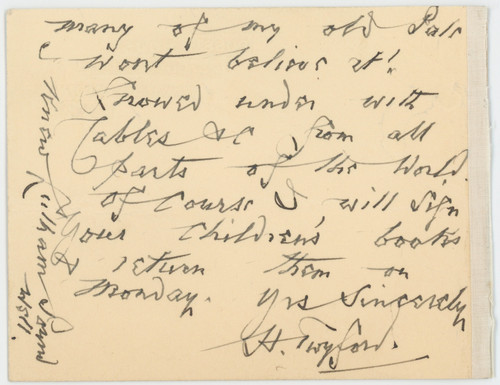 many of my old Pals
wont believe it!
Snowed under with
Cables &c, from all
parts of the World.
of Course I will sign
your Children's books
& return them on
Monday. Yrs Sincerely
H. Twyford.
I know Fulham Road
well.